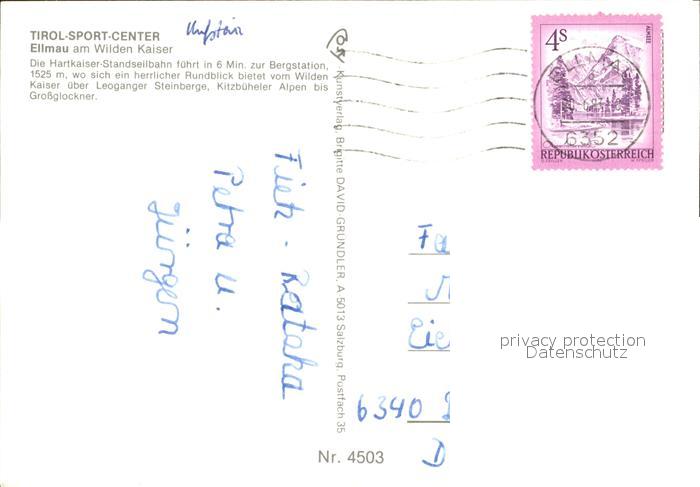 TIROL-SPORT-CENTER
Ellmau am Wilden Kaiser
Die Hartkaiser-Standseilbahn führt in 6 Min. zur Bergstation,
1525 m, wo sich ein herrlicher Rundblick bietet vom Wilden
Kaiser über Leoganger Steinberge, Kitzbüheler Alpen bis
Großglockner.
Kunstverlag, Brigitte DAVID-GRÜNDLER, A-5013 Salzburg, Postfach 35
4s
ALMSEE
6352
REPUBLIK ÖSTERREICH
Petra u.
Jürgen
Fa
Eie
6340
D
privacy protection
Datenschutz
Nr. 4503